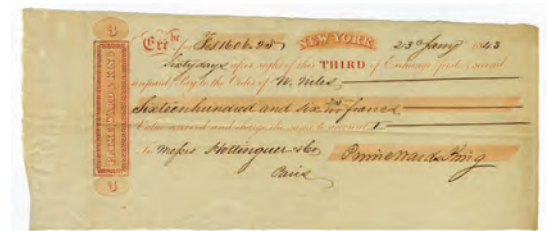 3
PRIME WARD & KING
3
Exc.^he for Fcs 1606.25 NEW YORK 23^d Jany 1843
Sixty days after sight of this THIRD of Exchange (first & second
unpaid) Pay to the Order of W. Niles
Sixteen hundred and six 25/100 francs
Value received and charge the same to account
To Messrs Hottinguer & Co Prime Ward & King
Paris